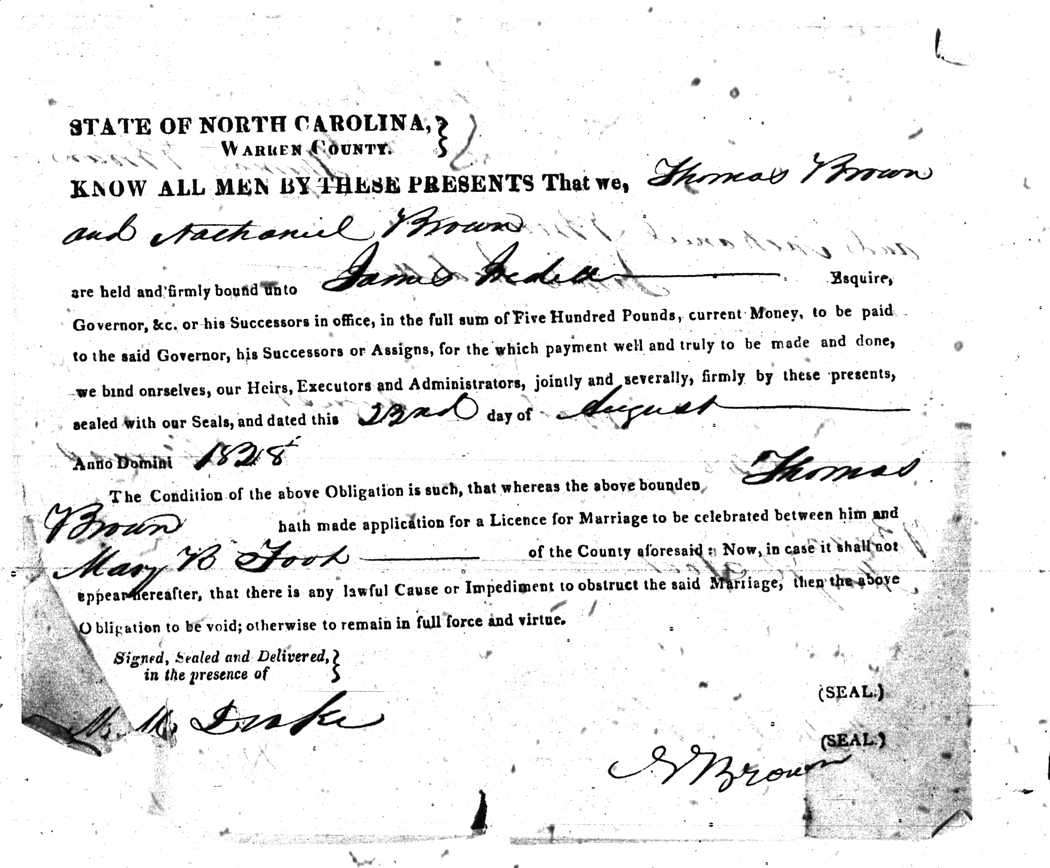 STATE OF NORTH CAROLINA,
WARREN COUNTY.
KNOW ALL MEN BY THESE PRESENTS That we, Thomas Brown
and Nathaniel Brown
are held and firmly bound unto James Iredell Esquire,
Governor, &c. or his Successors in office, in the full sum of Five Hundred Pounds, current Money, to be paid
to the said Governor, his Successors or Assigns, for the which payment well and truly to be made and done,
we bind onrselves, our Heirs, Executors and Administrators, jointly and severally, firmly by these presents,
sealed with our Seals, and dated this 22nd day of August
Anno Domini 1828
The Condition of the above Obligation is such, that whereas the above bounden Thomas
Brown hath made application for a Licence for Marriage to be celebrated between him and
Mary B of the County aforesaid: Now, in case it shall not
appear hereafter, that there is any lawful Cause or Impediment to obstruct the said Marriage, then the above
Obligation to be void; otherwise to remain in full force and virtue.
Signed, Sealed and Delivered,
in the presence of
(SEAL.)
M. M. Drake
(SEAL.)
N Brown